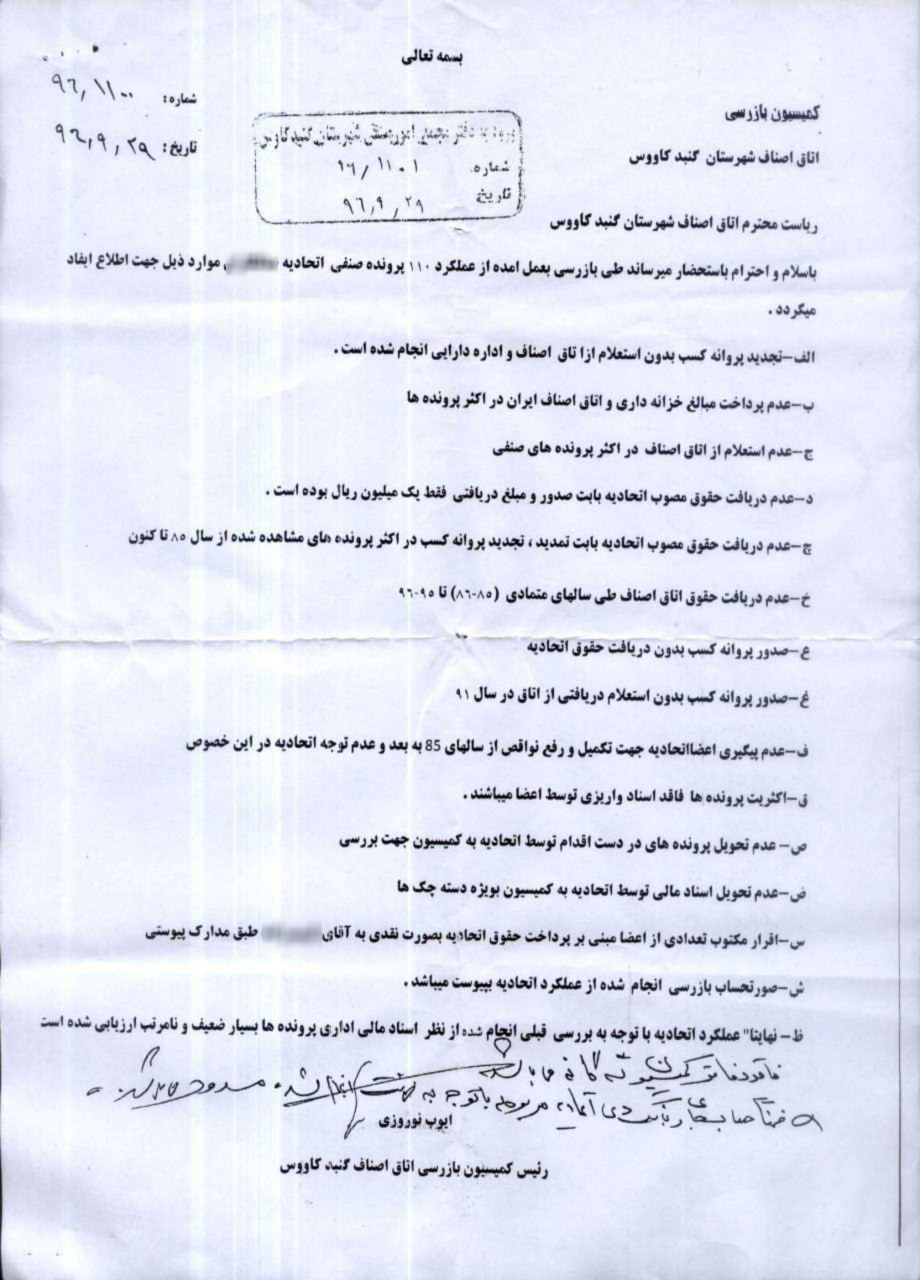 بسمه تعالی
شماره: ۹۶٫۱۱۰۰
تاریخ: ۹۶٫۹٫۲۹
کمیسیون بازرسی
اتاق اصناف شهرستان گنبد کاووس
ورود به دفتر مجمع امور صنفی شهرستان گنبد کاووس
شماره. ۹۶٫۱۱۰۱
تاریخ ۹۶٫۹٫۲۹
ریاست محترم اتاق اصناف شهرستان گنبد کاووس
باسلام و احترام باستحضار میرساند طی بازرسی بعمل امده از عملکرد ۱۱۰ پرونده صنفی اتحادیه موارد ذیل جهت اطلاع ایفاد
میگردد .
الف-تجدید پروانه کسب بدون استعلام ازا تاق اصناف و اداره دارایی انجام شده است .
ب-عدم پرداخت مبالغ خزانه داری و اتاق اصناف ایران در اکثر پرونده ها
ج-عدم استعلام از اتاق اصناف در اکثر پرونده های صنفی
د-عدم دریافت حقوق مصوب اتحادیه بابت صدور و مبلغ دریافتی فقط یک میلیون ریال بوده است .
چ-عدم دریافت حقوق مصوب اتحادیه بابت تمدید ، تجدید پروانه کسب در اکثر پرونده های مشاهده شده از سال ۸۵ تا کنون
خ-عدم دریافت حقوق اتاق اصناف طی سالهای متمادی (۸۵-۸۶) تا ۹۵-۹۶
ع-صدور پروانه کسب بدون دریافت حقوق اتحادیه
غ-صدور پروانه کسب بدون استعلام دریافتی از اتاق در سال ۹۱
ف-عدم پیگیری اعضااتحادیه جهت تکمیل و رفع نواقص از سالهای 85 به بعد و عدم توجه اتحادیه در این خصوص
ق-اکثریت پرونده ها فاقد اسناد واریزی توسط اعضا میباشند .
ص- عدم تحویل پرونده های در دست اقدام توسط اتحادیه به کمیسیون جهت بررسی
ض-عدم تحویل اسناد مالی توسط اتحادیه به کمیسیون بویژه دسته چک ها
س-اقرار مکتوب تعدادی از اعضا مبنی بر پرداخت حقوق اتحادیه بصورت نقدی به آقای طبق مدارک پیوستی
ش-صورتحساب بازرسی انجام شده از عملکرد اتحادیه بپیوست میباشد .
ظ- نهایتا" عملکرد اتحادیه با توجه به بررسی قبلی انجام شده از نظر اسناد مالی اداری پرونده ها بسیار ضعیف و نامرتب ارزیابی شده است
با توجه به
ایوب نوروزی
رئیس کمیسیون بازرسی اتاق اصناف گنبد کاووس